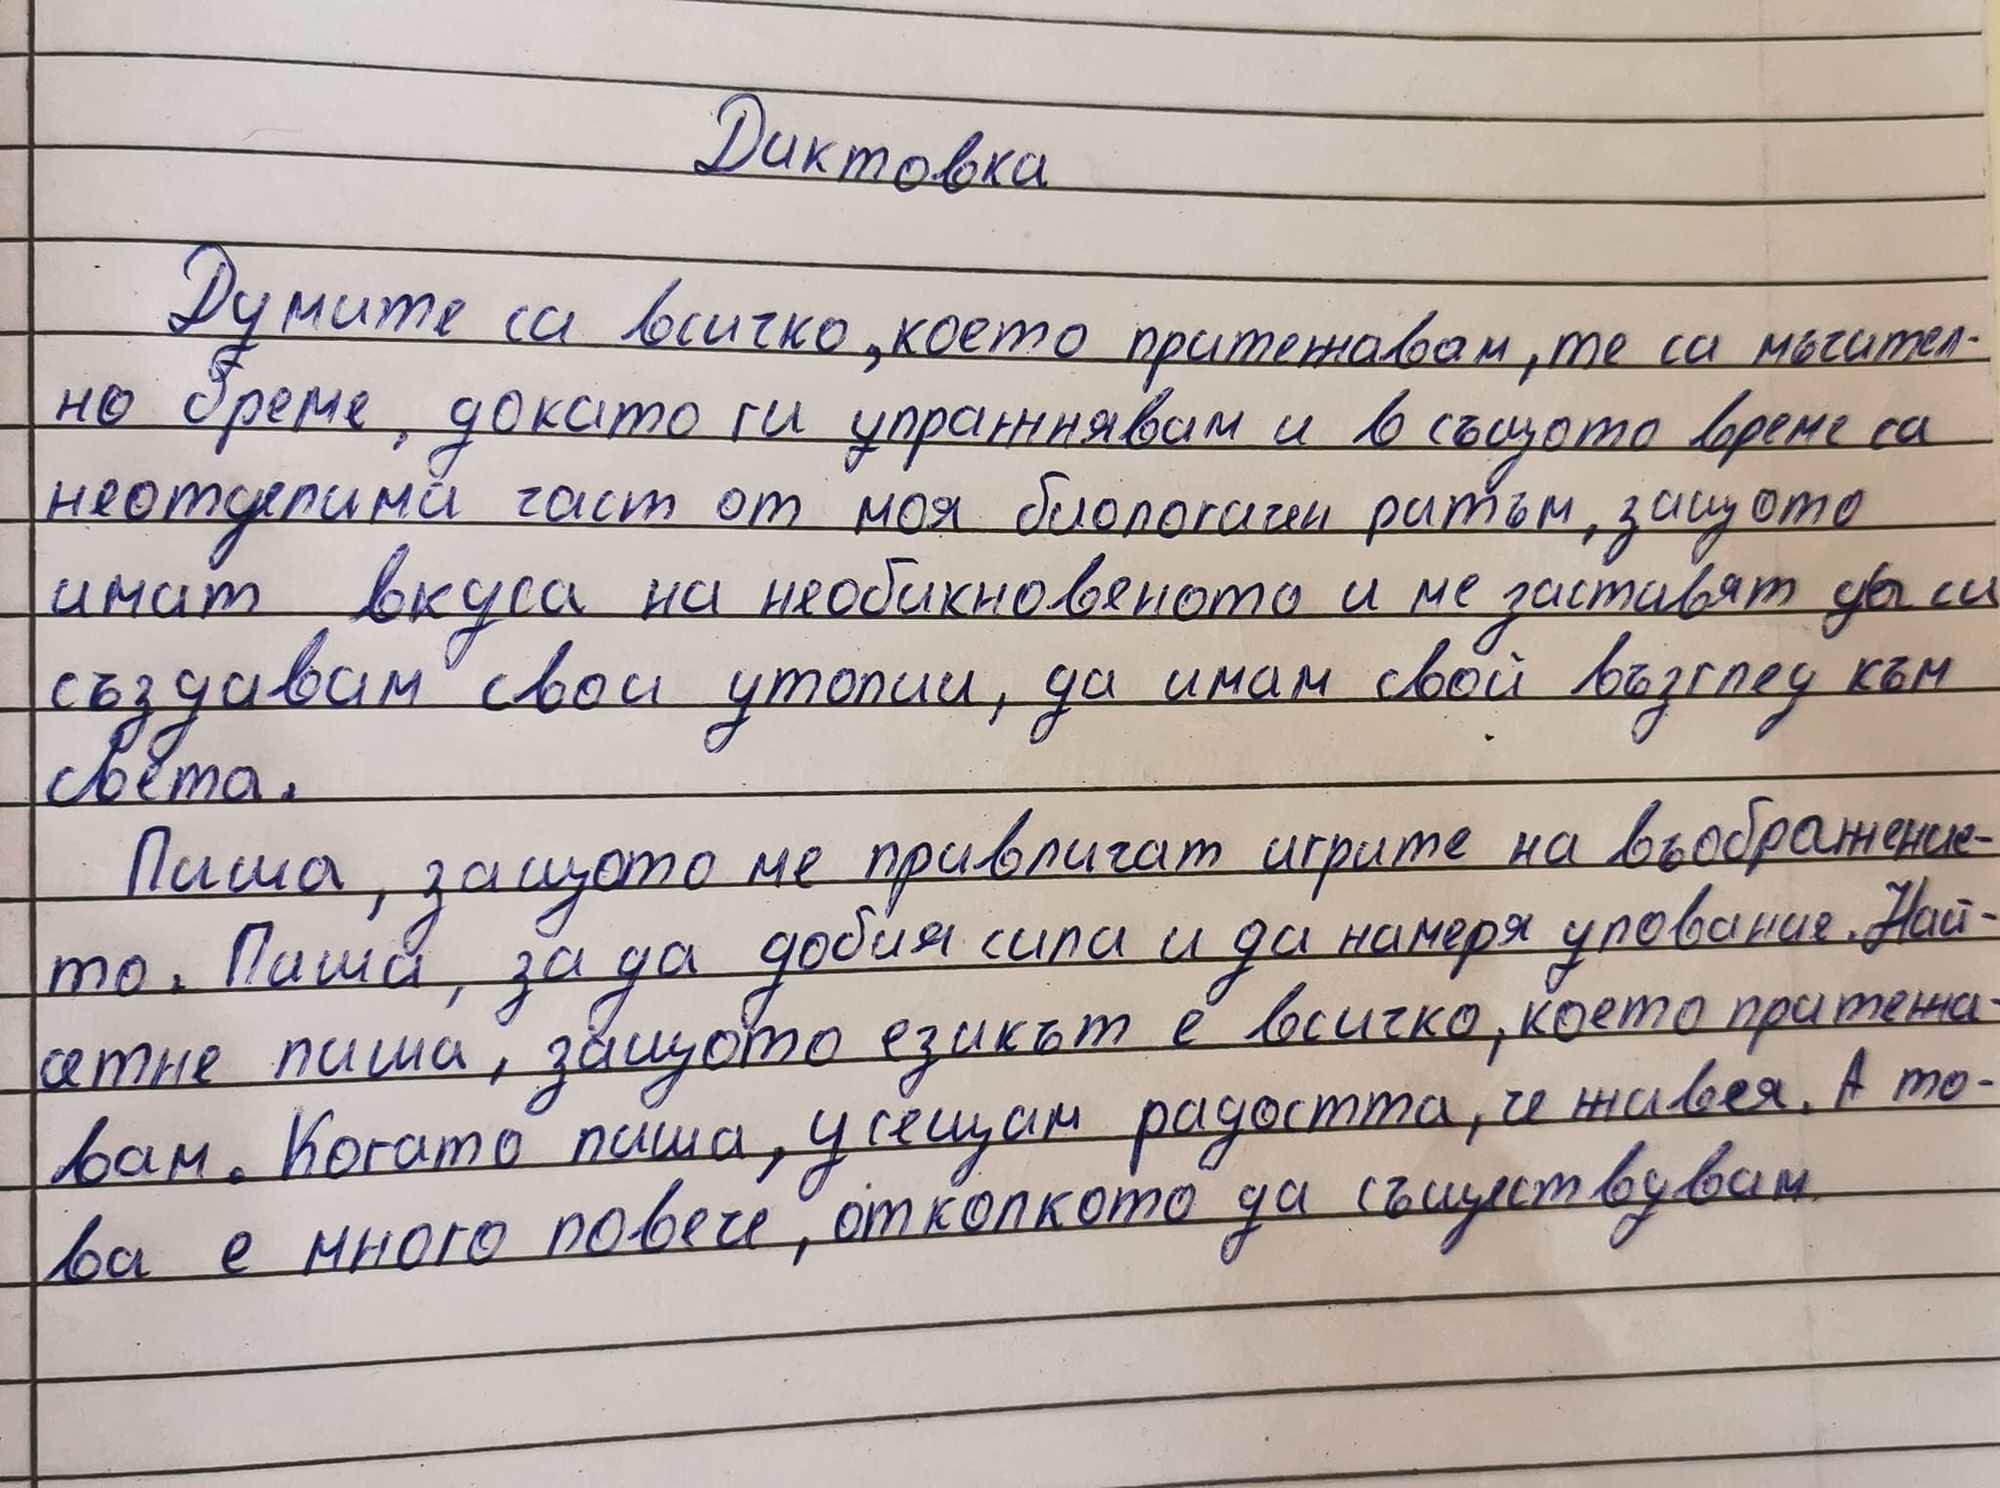 Диктовка
Думите са всичко, което притежавам, те са мъчител-
но бреме, докато ги упражнявам и в същото време са
неотделима част от моя биологичен ритъм, защото
имат вкуса на необикновеното и ме заставят да си
създавам свои утопии, да имам свой възглед към
света.
Пиша, защото ме привличат игрите на въображение-
то. Пиша, за да добия сила и да намеря упование. Най-
сетне пиша, защото езикът е всичко, което притежа-
вам. Когато пиша, усещам радостта, че живея. А то-
ва е много повече, отколкото да съществувам.